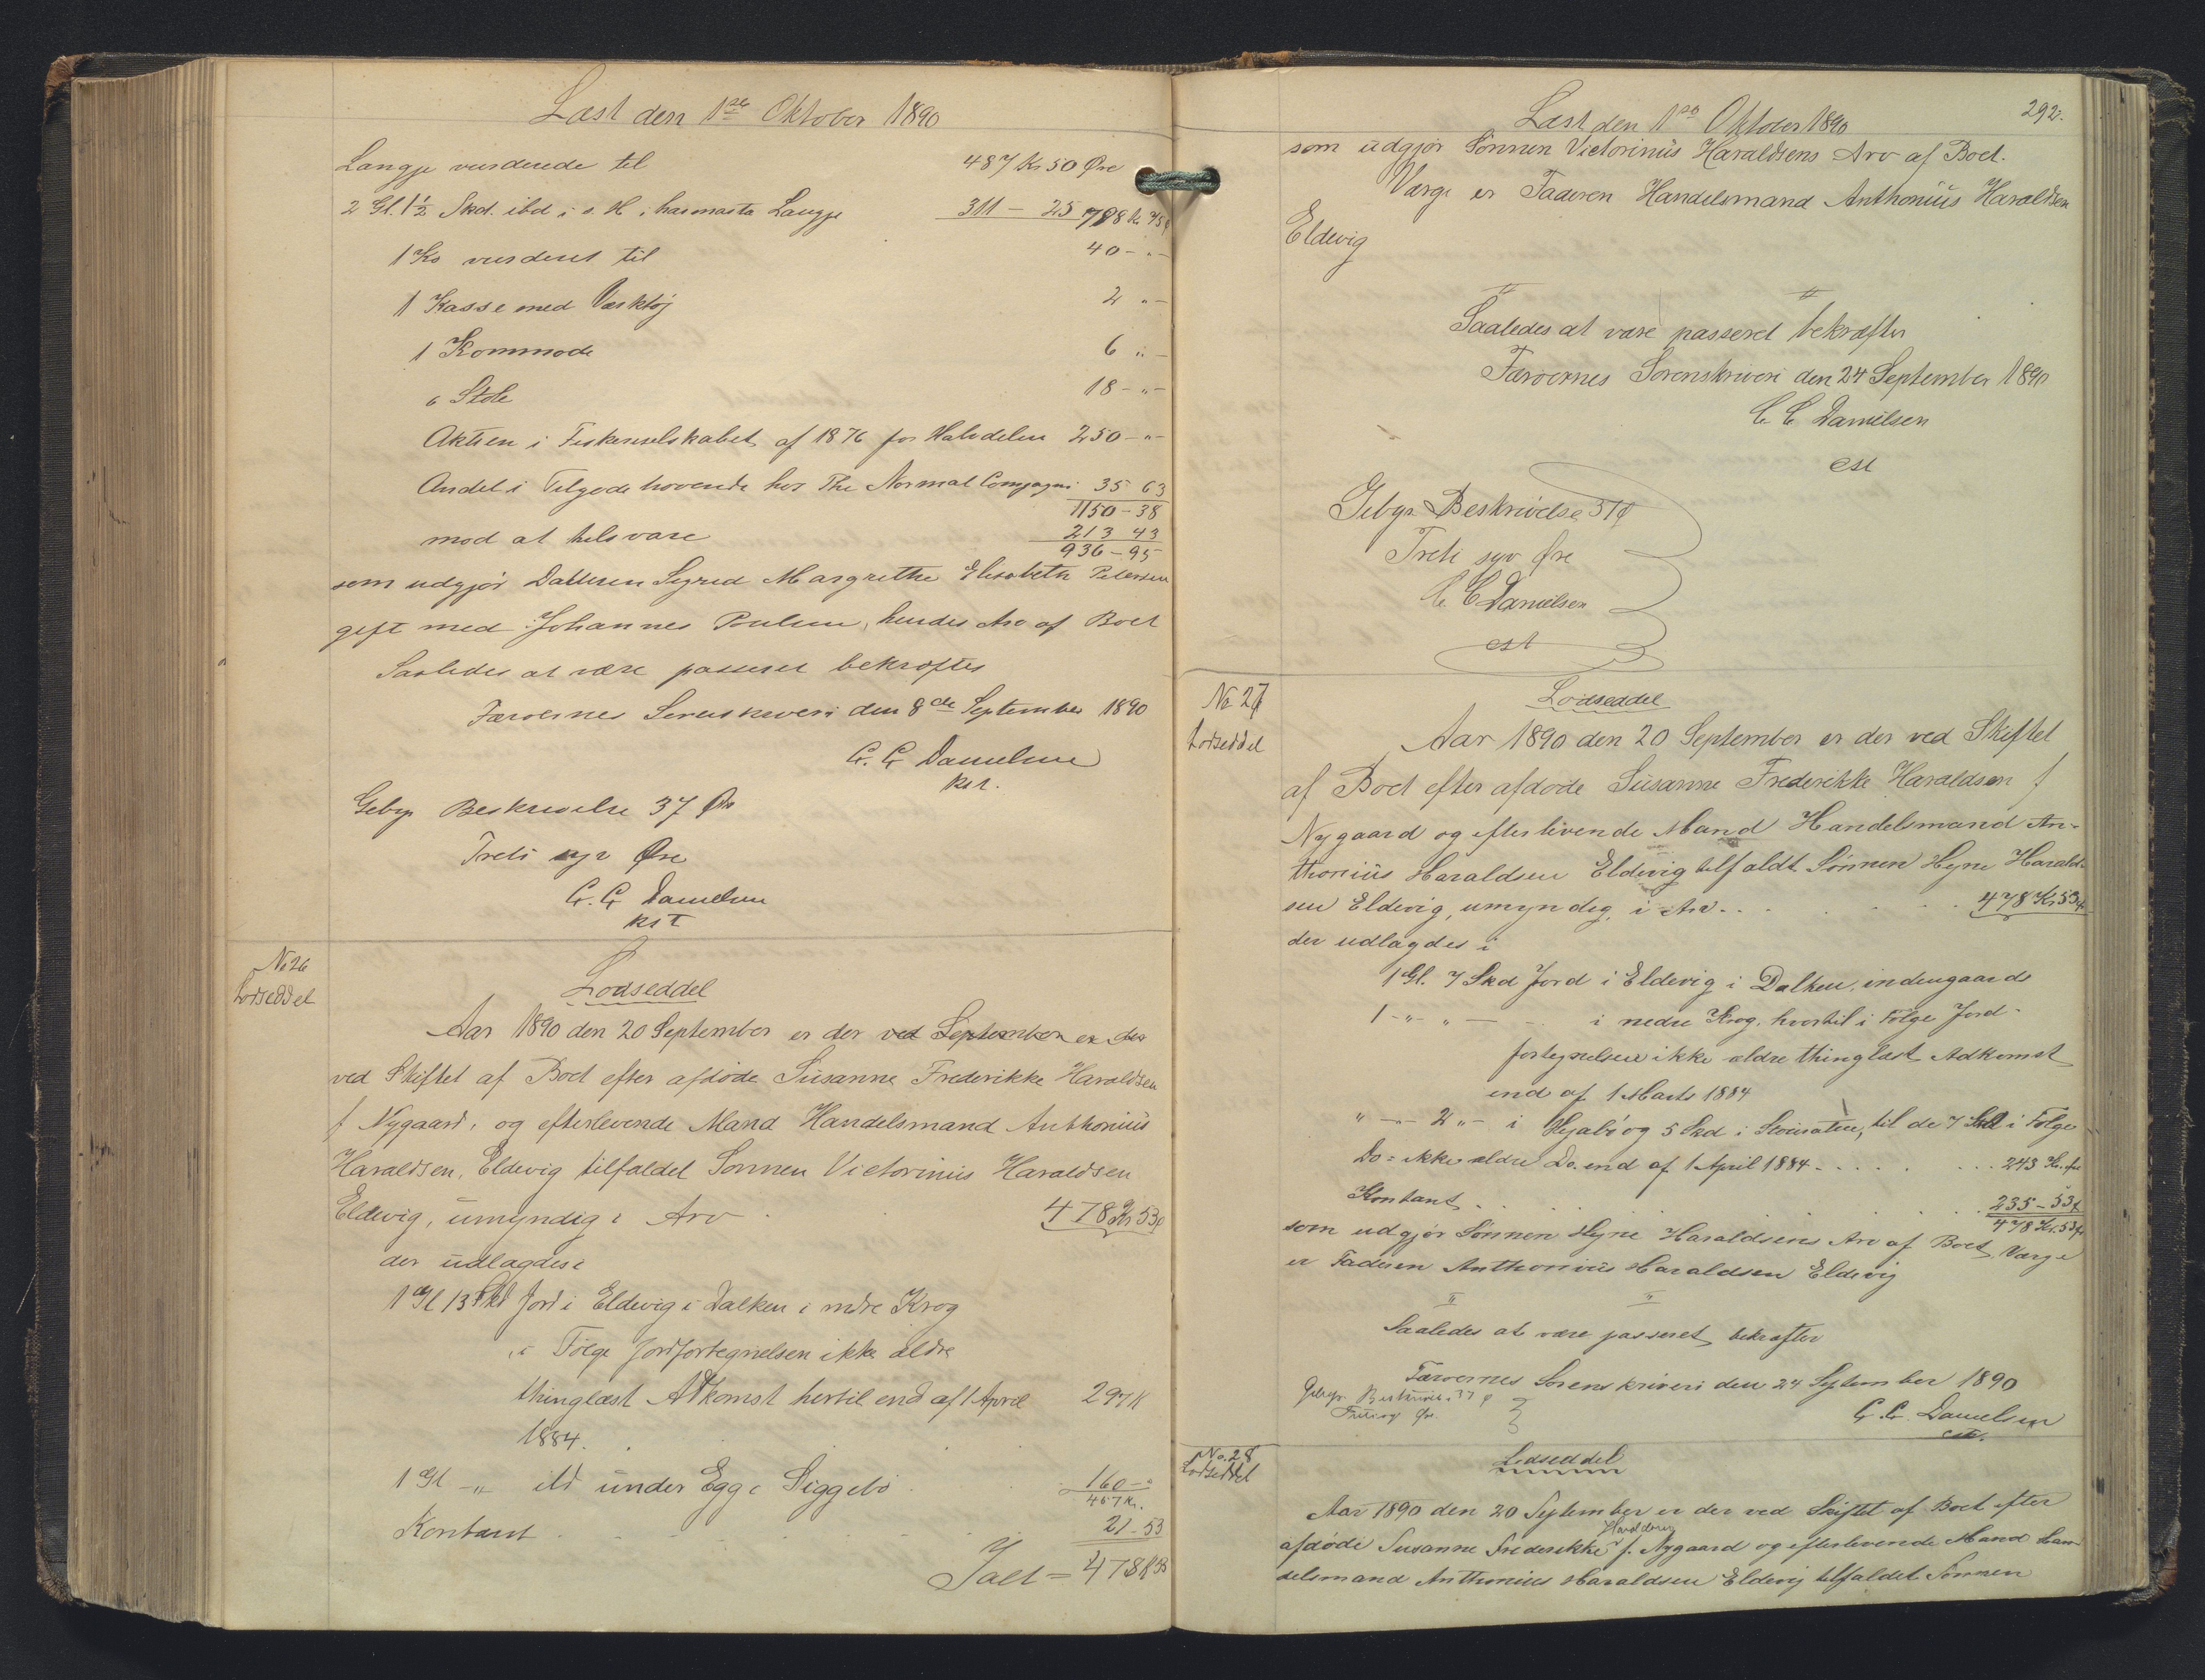 Læst den 1ste Oktober 1890
Langgje vurderede til 487 Kr 50 Øre
2 Gl. 1½ Skd. ibd i s. H. i Langgje 311 – 25 798 Kr 75 ø
1 Ko vurderet til 40 – " –
1 Kasse med Værktøj 2 " –
1 Kommode 6 " –
6 Stole 18 – " –
Aktien i Fiskeriselskabet af 1876 for Halvdelen 250 – " –
Andel i Tilgodehavende hos The Normal Compagni 35 63
1150 – 38
mod at tilsvare 213 43
936 – 95
som udgjør Datteren Sigrid Margrethe Elisabeth Petersen
gift med Johannes Poulsen, hendes Arv af Boet
Saaledes at være passeret bekræftes
Færøernes Sorenskriveri den 8de September 1890
C. C. Danielsen
kst.
Gebyr Beskrivelse 37 Øre
Treti syv Øre
C. C. Danielsen
kst
No 26
Lodseddel
Lodseddel
Aar 1890 den 20 September er der ved September er der
ved Skiftet af Boet efter afdøde Susanne Frederikke Haraldsen
f Nygaard, og efterlevende Mand Handelsmand Anthonius
Haraldsen, Eldevig tilfaldet Sønnen Victorinus Haraldsen
Eldevig, umyndig i Arv 478 Kr 53 ø
der udlagdes i
1 Gl 13 Skd Jord i Eldevig i Dalken i nedre Krog
i Følge Jordfortegnelsen ikke ældre
thinglæst Adkomst hertil end af 1 April 297 K
1884.
1 Gl – " ibd under Egg i Siggebø 160 – "
457 Kr.
Kontant 21 – 53
Ialt = 478 K 53
292.
Læst den 1ste Oktober 1890
som udgjør Sønnen Victorinus Haraldsens Arv af Boet.
Værge er Faderen Handelsmand Anthonius Haraldsen
Eldevig
Saaledes at være passeret bekræftes
Færøernes Sorenskriveri den 24 September 1890
C. C. Danielsen
cst
Gebyr Beskrivelse 37 ø
Treti syv Øre
C. C. Danielsen
cst
No 27
Lodseddel
Lodseddel
Aar 1890 den 20 September er der ved Skiftet
af Boet efter afdøde Susanne Frederikke Haraldsen f
Nygaard og efterlevende Mand Handelsmand An-
thonius Haraldsen Eldevig tilfaldt Sønnen Hejne Harald-
sen Eldevig, umyndig, i Arv 478 Kr 53 ø
der udlagdes i
1 Gl. 7 Skd Jord i Eldevig i Dalken, indengaards
1 – " – " – – i nedre Krog, hvortil i Følge Jord-
fortegnelsen ikke ældre thinglæst Adkomst
end af 1 Marts 1884
" – " – 2 " – i Hejabø og 5 Skd i til de 7 Skd i Følge
Do = ikke ældre Do. end af 1 April 1884 243 Kr.
Kontant 235 – 53 ø
478 Kr. 53 ø
som udgjør Sønnen Hejne Haraldsens Arv af Boet, Værge
er Faderen Anthonius Haraldsen Eldevig
Saaledes at være passeret, bekræftes
Færøernes Sorenskriveri den 24 September 1890
Gebyr. Beskrivelse 37 ø
Treti syv Øre
C. C. Danielsen
cst.
No. 28
Lodseddel
Lodseddel
Aar 1890 den 20 September er der ved Skiftet af Boet efter
afdøde Susanne Frederikke Haraldsen f. Nygaard og efterlevende Mand Han-
delsmand Anthonius Haraldsen Eldevig tilfaldet Sønnen